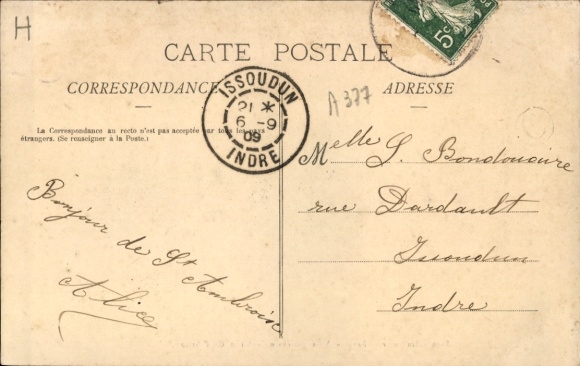 H
5c
CARTE POSTALE
CORRESPONDANCE
ADRESSE
ISSOUDUN
21 *
6 -9
09
INDRE
A 377
La Correspondance au recto n'est pas acceptée par tous les pays
étrangers. (Se renseigner à la Poste.)
Melle S. Bondouaire
rue Dardault
Issoudun
Indre
Bonjour de St Ambroise
Alice